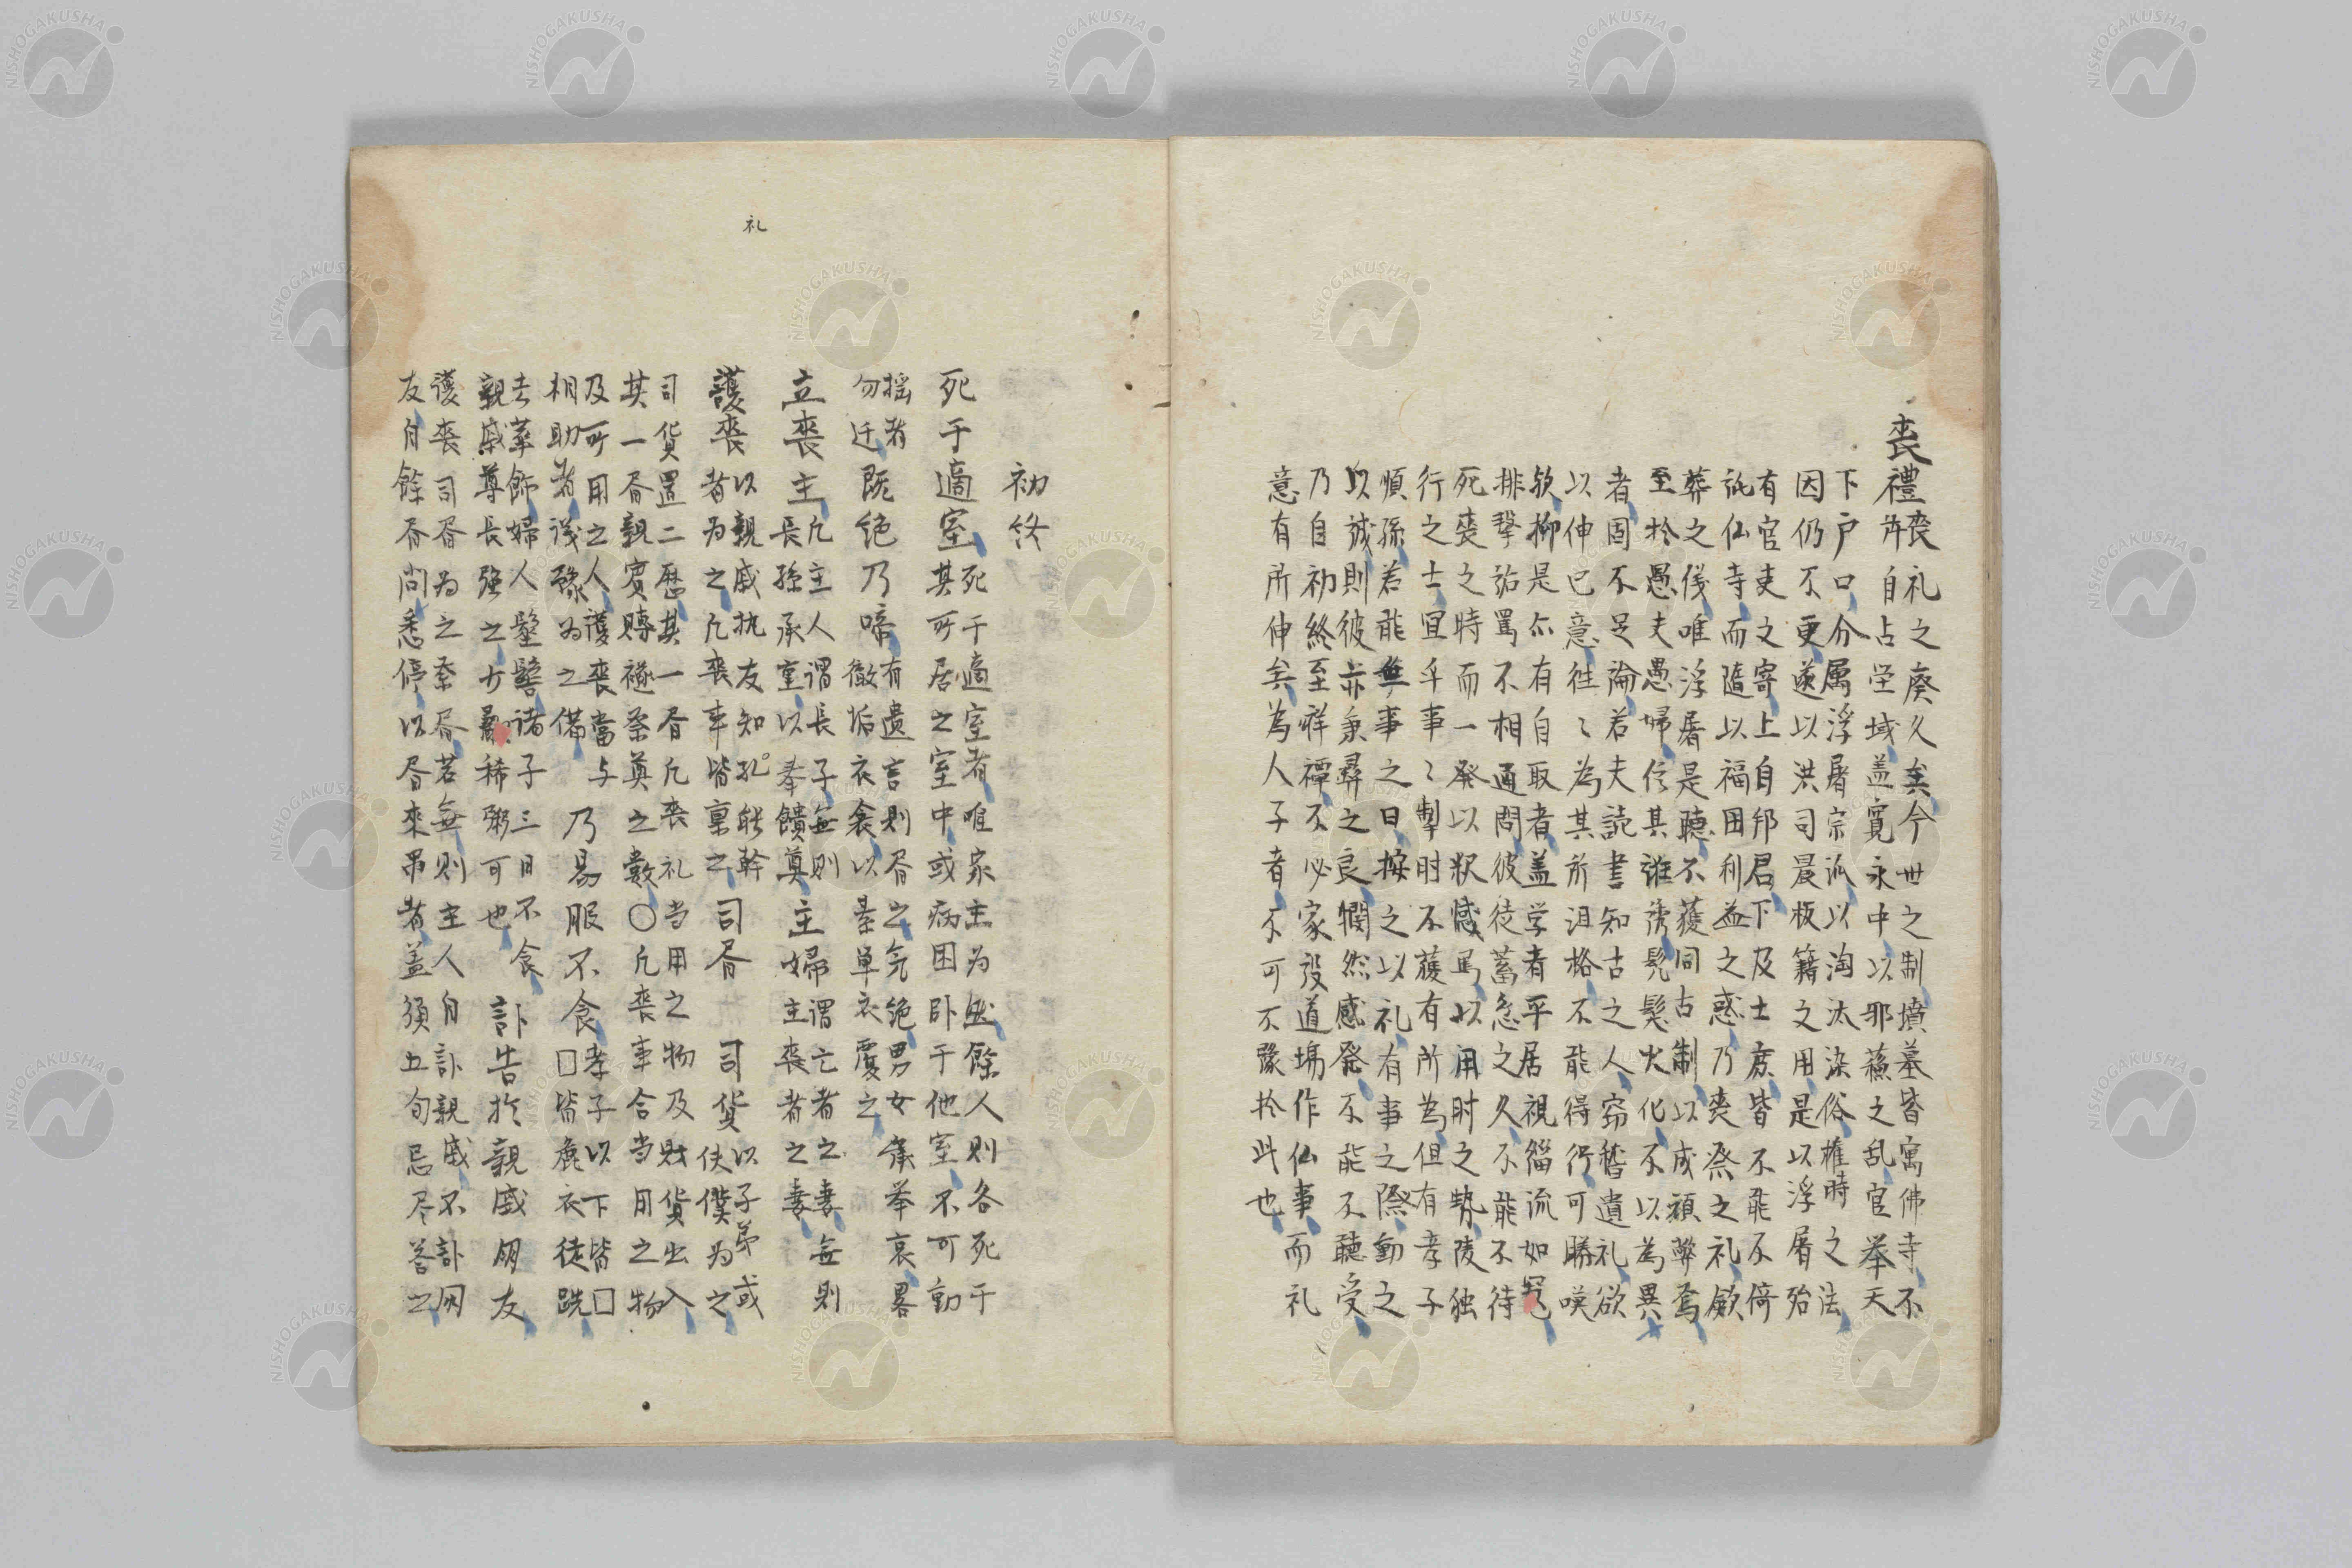 喪禮
喪礼之廃久矣今世之制墳墓皆寓佛寺不
許自占塋域盖寛永中以邪蘓之乱官举天
下戸口分属浮屠宗派以淘汰染俗権時之法
因仍不更遂以洪司晨板籍之用是以浮屠殆
有官吏之寄上自邦君下及士庶皆不能不倚
託仏寺而隨以福田利益之惑乃喪祭之礼歛
葬之儀唯浮屠是聽不獲同古制以成頽弊焉
至於愚夫愚婦信其誰誘髡髪火化不以為異
者固不足論若夫読書知古之人窃嘗遺礼欲
以伸已意往〻為其所沮格不能得行可勝嘆
欤抑是尓有自取者盖学者平居視緇流如冦
排撃詬罵不相通問彼徒蓄怨之久不能不待
死喪之時而一発以釈憾焉以用时之勢陵独
行之士宜乎事〻掣肘不獲有所為但有孝子
順孫若能無事之日按之以礼有事之際動之
以誠則彼亦秉彝之良憫然感発不能不聽受
乃自初終至祥禫不必家設道場作仏事而礼
意有所伸矣為人子者不可不豫於此也
初終
死于適室
死于適室者唯家主为然餘人則各死于
其所居之室中或病困卧于他室不可動
揺者
勿迁
既绝乃啼
有遺言則昏之気绝男女擗举哀畧
徹垢衣衾以素单衣覆之
立喪主
凡主人謂長子無則
長孫承重以奉饋奠
主婦
謂亡者之妻無則
主喪者之妻
護喪
以親戚执友知礼能幹
者为之凡喪事皆禀之
司昏
司货
以子弟或
伕僕为之
司货置二歷其一昏凡喪礼当用之物及财货出入
其一昏親賓賻襚祭奠之數〇凡喪事合当用之物
及所用之人護喪當与
相助者議豫为之備
乃易服不食
孝子以下皆□
□皆麁衣徒跣
去華飾婦人髽髻諸子三日不食
親戚尊長强之少歠稀粥可也
訃告於親戚朋友
護喪司昏为之条昏若無則主人自訃親戚不訃朋
友自餘昏问悉停以昏來吊者盖須五旬忌尽答之
礼